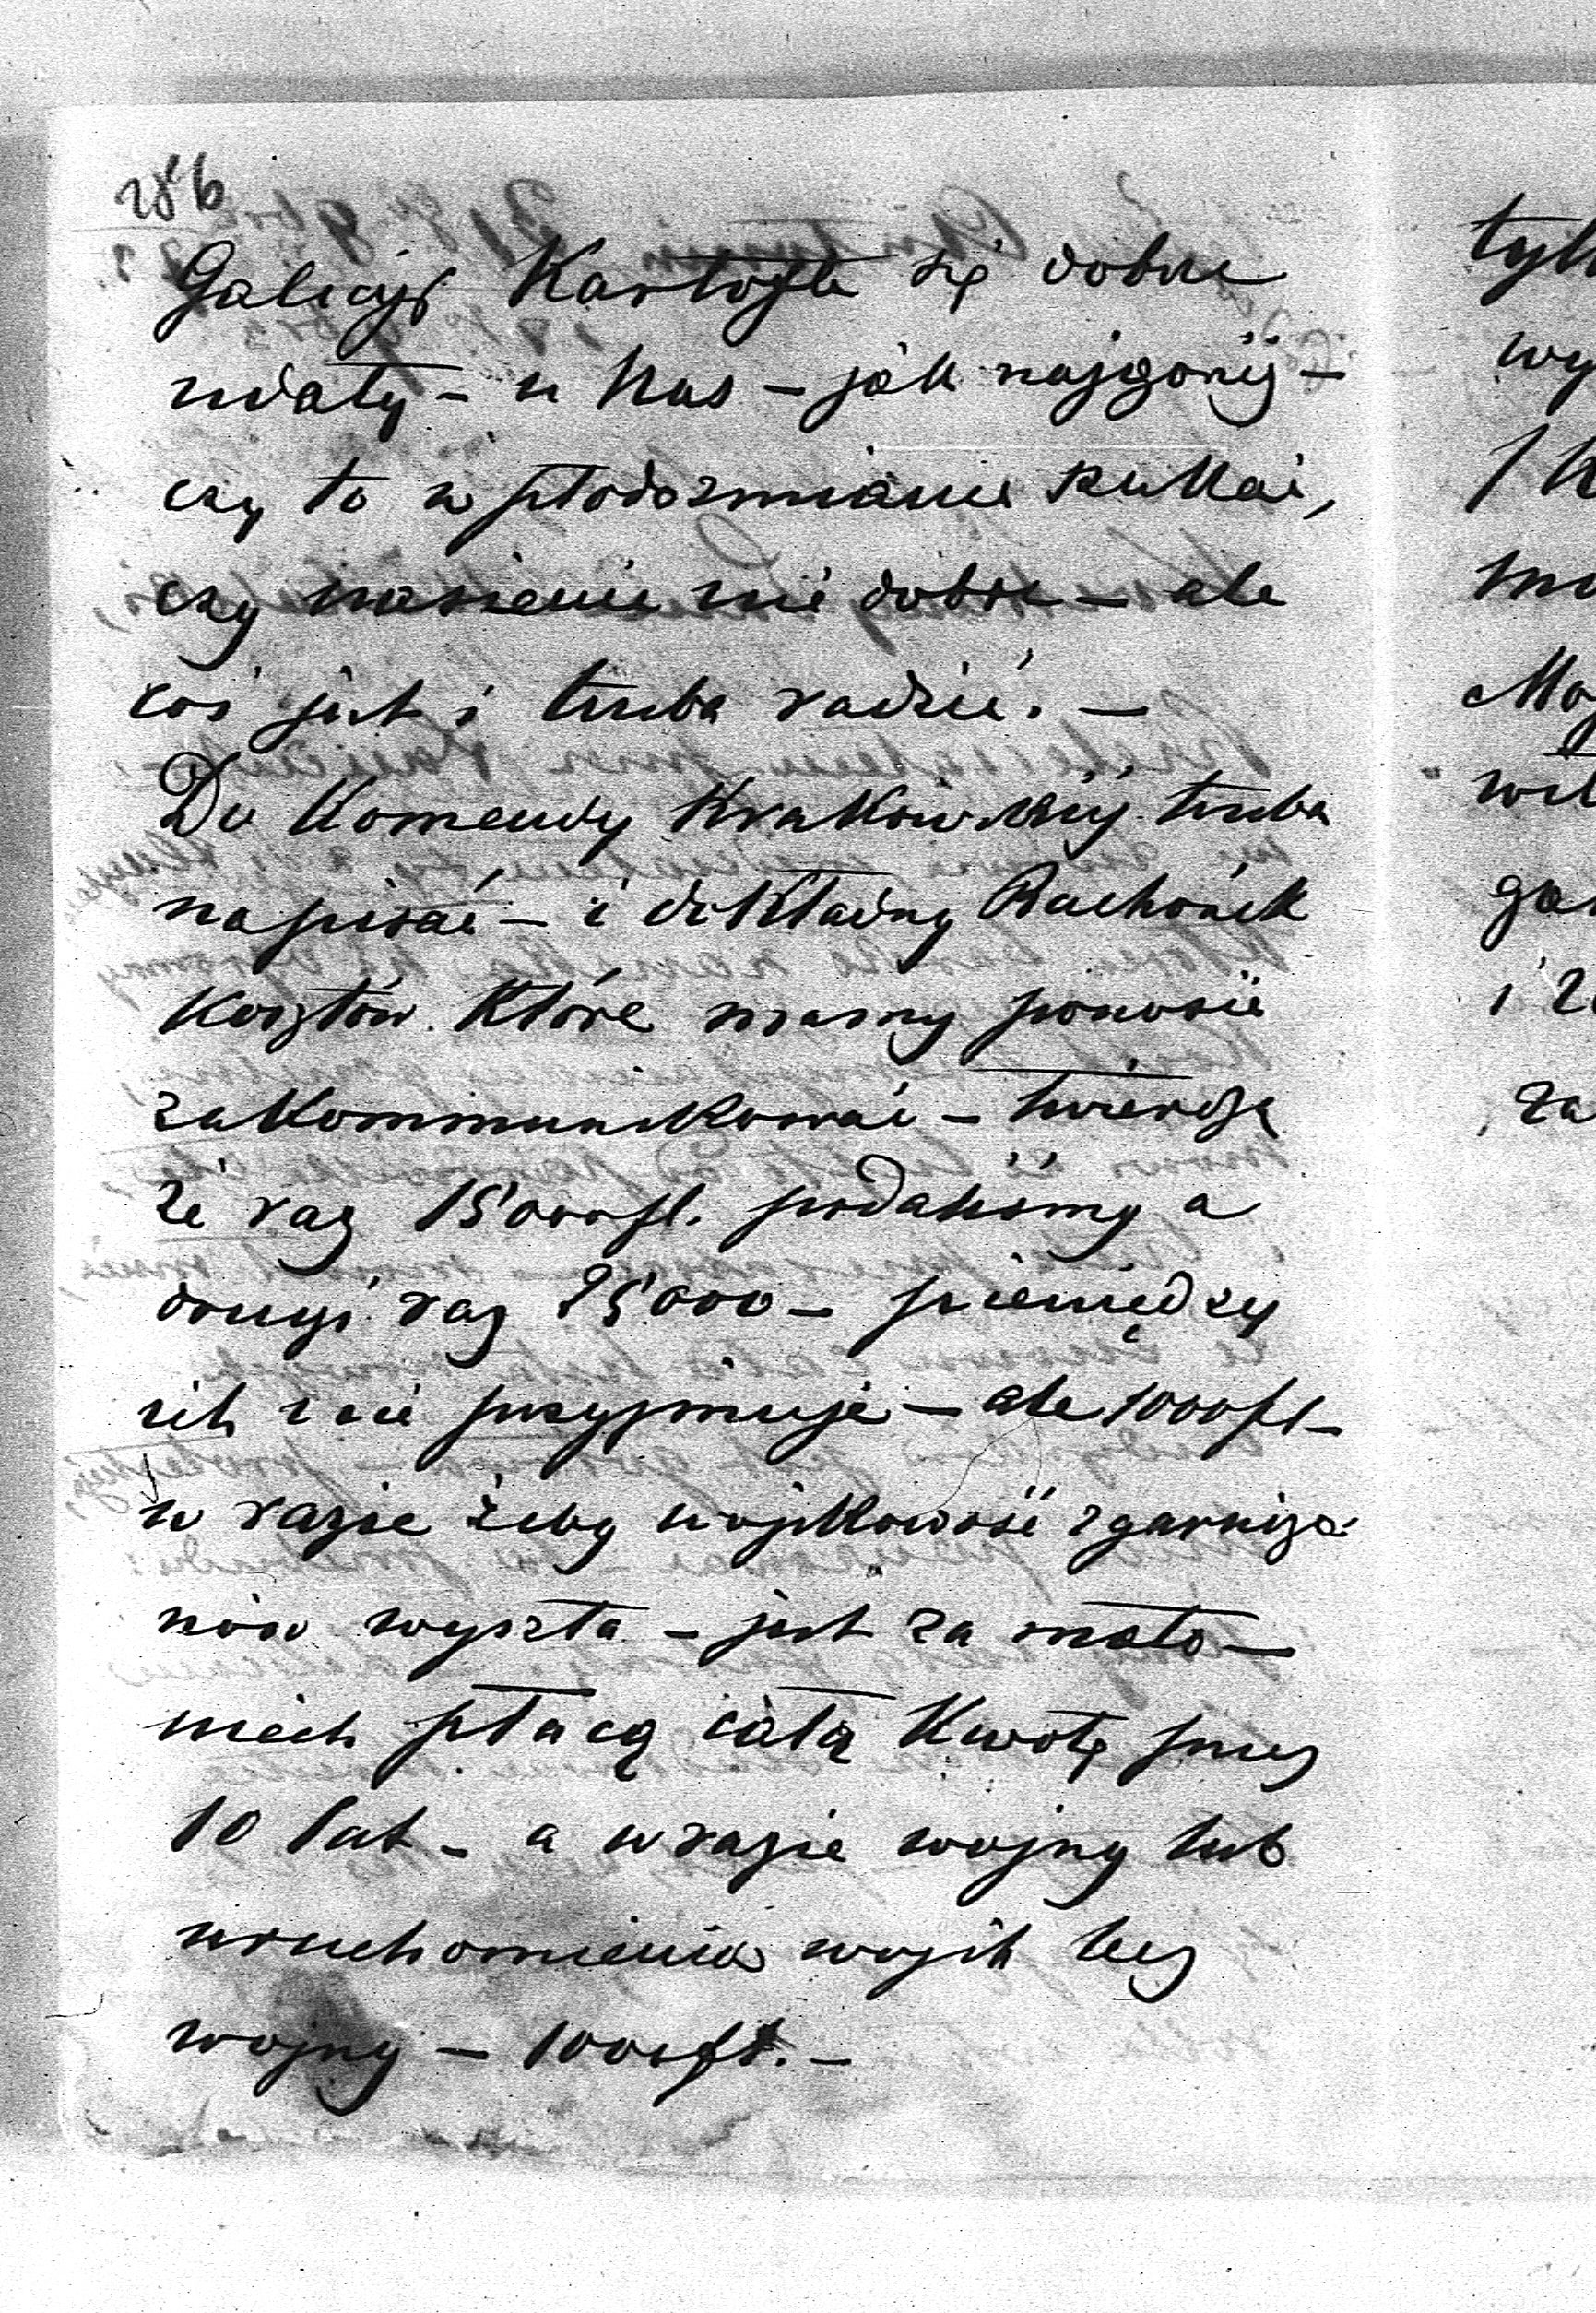 28b
Galicyi Kartofle się dobrze
udały – u nas – jak najgorzej –
czy to w płodozmianie szukać,
czy nasienie nie dobre – ale
coś jest i trzeba radzić. –
Do Komendy Krakowskiej trzeba
napisać – i dokładny Rachunek
Kosztów które mamy ponosić
zakommunikować – twierdzą
że raz 15000 fl. podaliśmy a
drugi raz 25000 – pieniędzy
ich nie przyjmuję – ale 1000 fl –
w razie żeby wojskowość z garnizo-
nów wyszła – jest za mało –
niech płacą całą Kwotę przez
10 lat – a w razie wojny lub
uruchomienia wojsk bez
wojny – 1000 fl. –
tyl
wy
ga
za